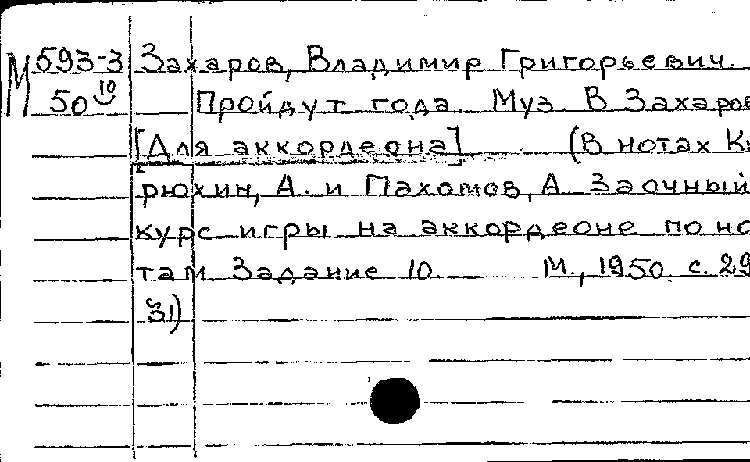 М 593-3 Захаров, Владимир Григорьевич.
50 10 Пройдут года. Муз. В. Захаров
[Для аккордеона] (В нотах Ки
рюхин, А. и Пахомов, А. Заочный
курс игры на аккордеоне по но
там Задание 10. М., 1950. с. 29
31)